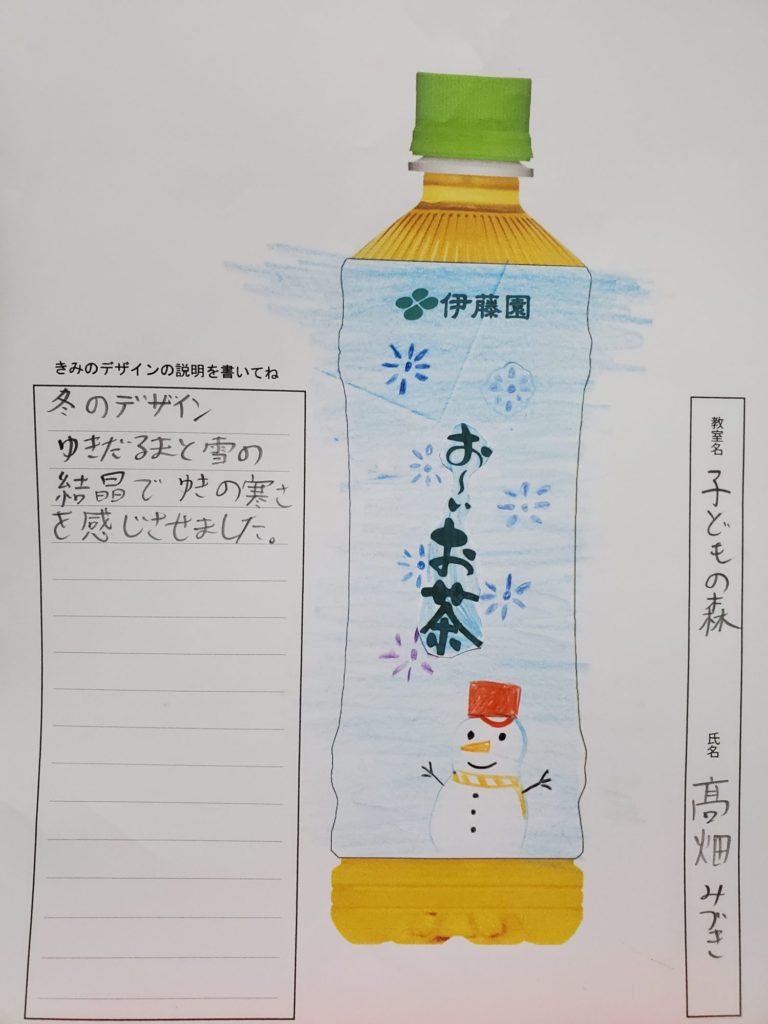 伊藤園
お～いお茶
きみのデザインの説明を書いてね
冬のデザイン
ゆきだるまと雪の
結晶でゆきの寒さ
を感じさせました。
教室名
子どもの森
氏名
髙畑みづき